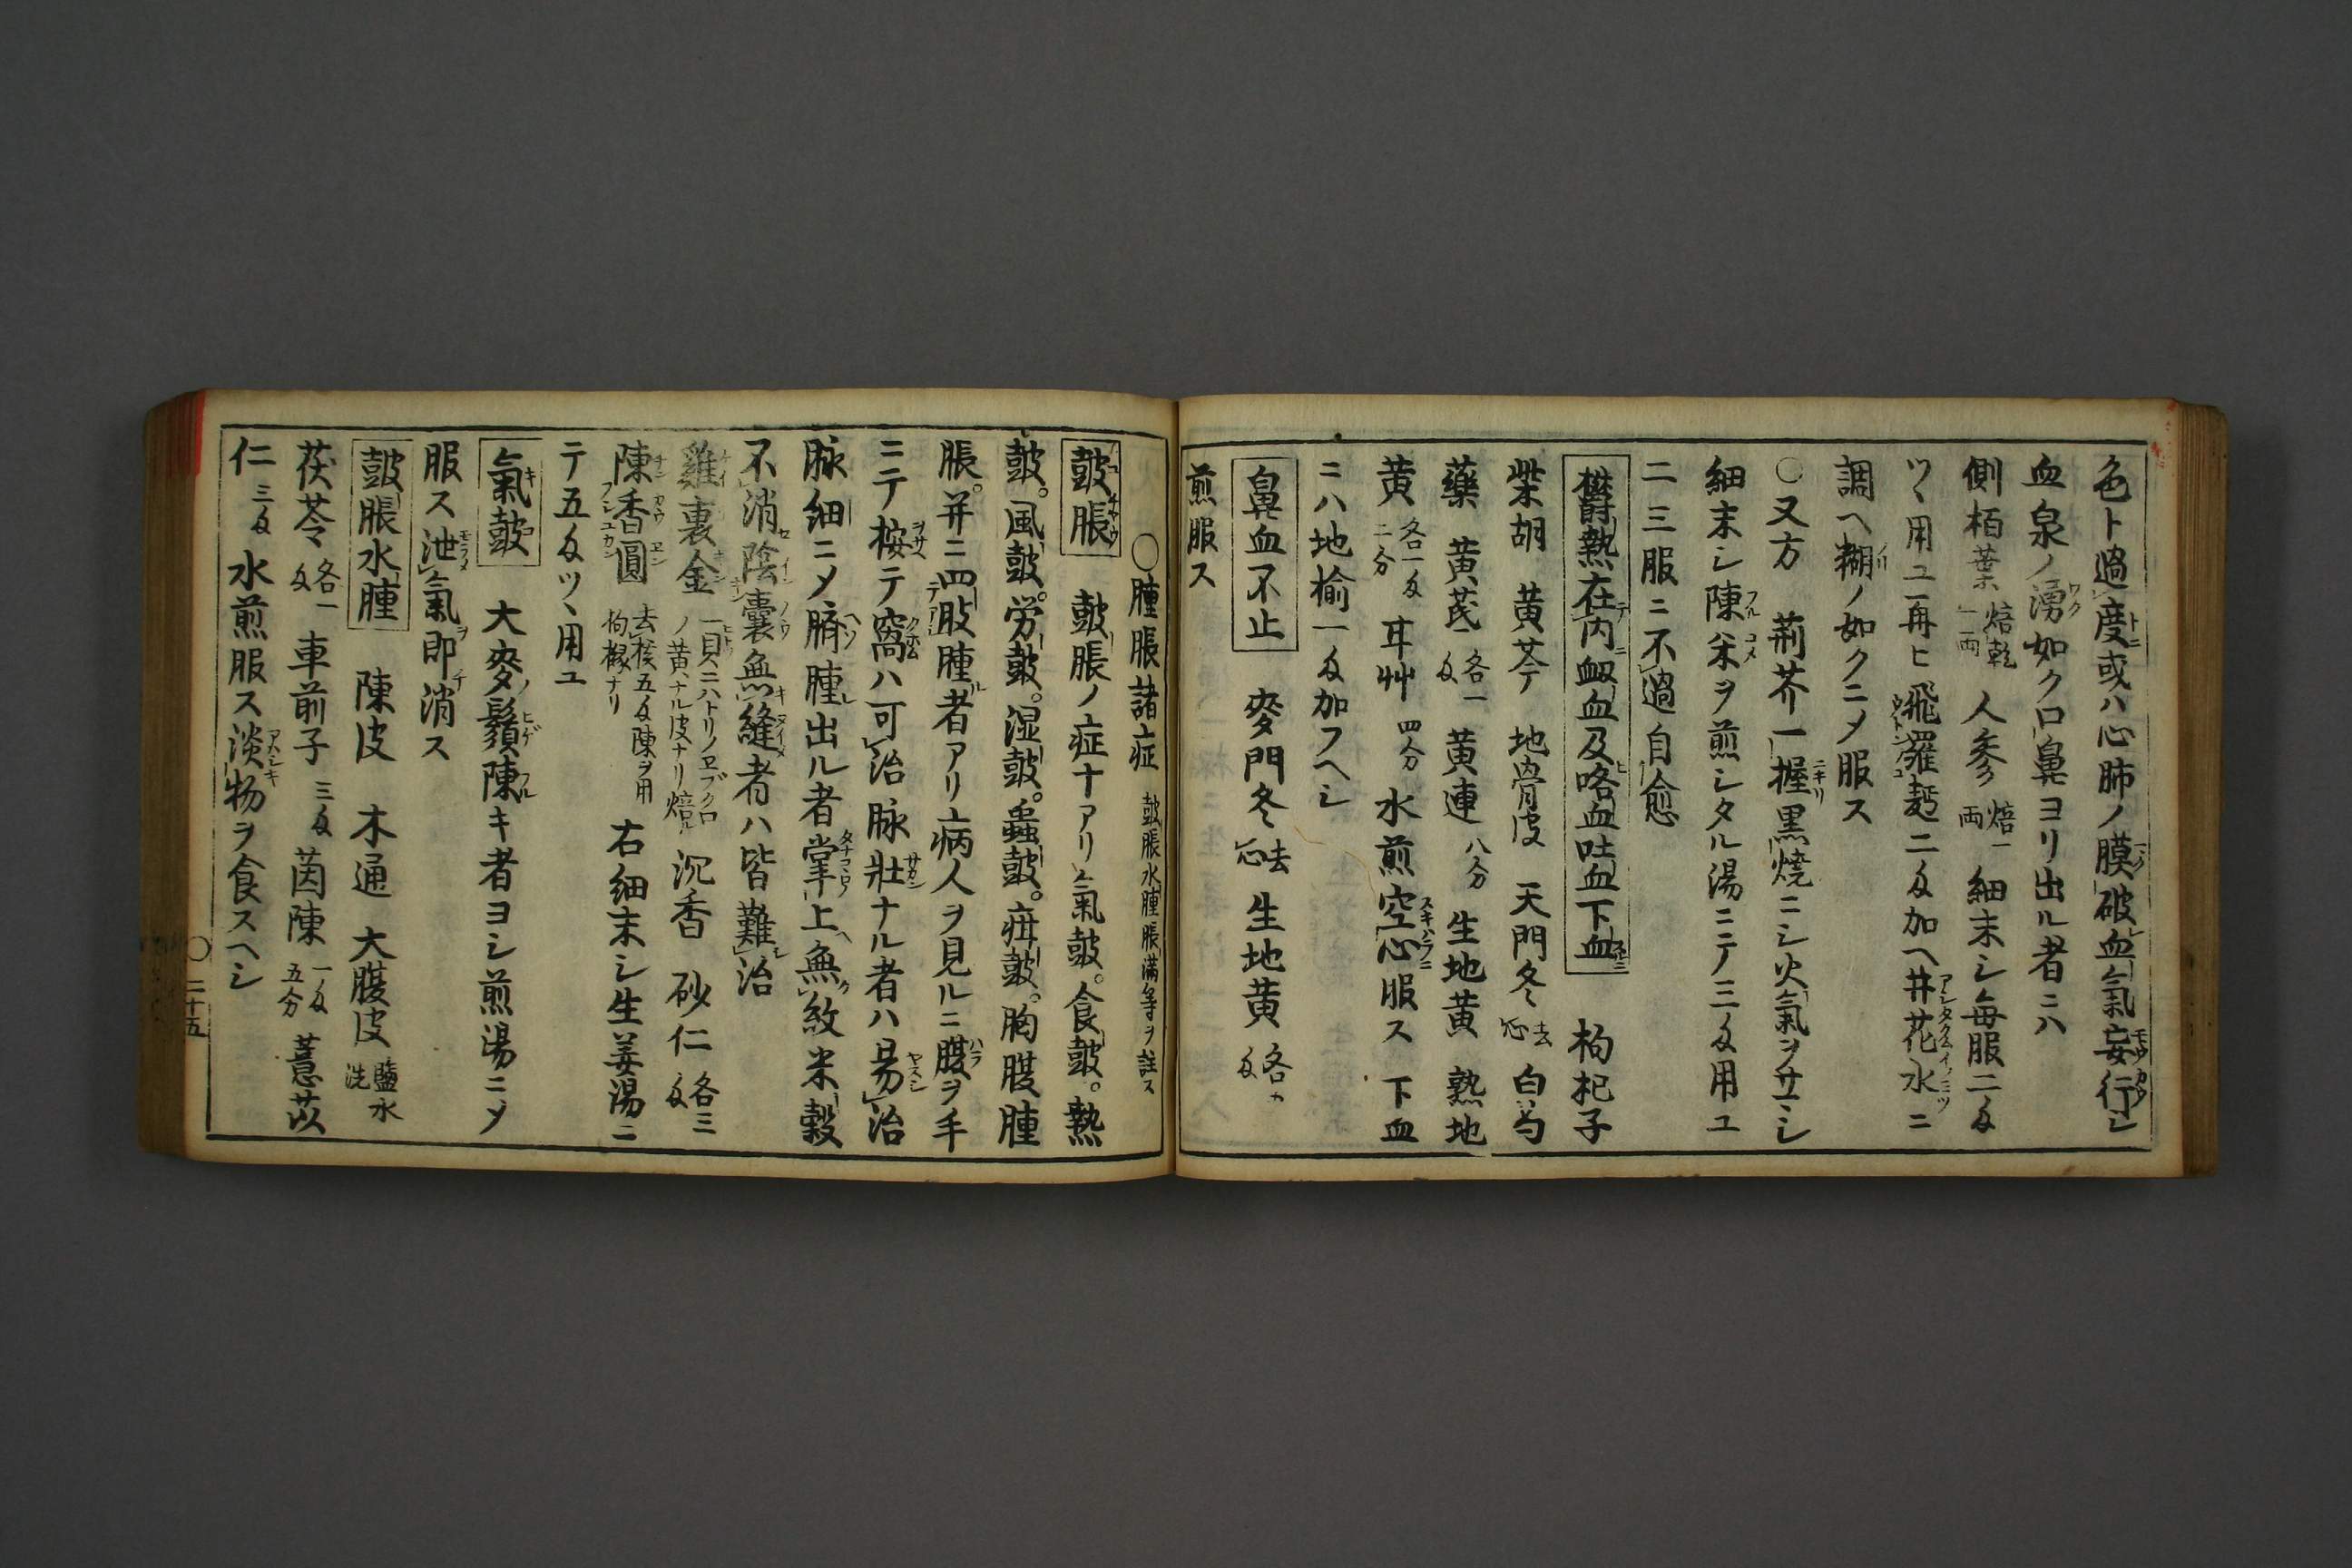 色ト過度或ハ心肺ノ膜破血氣妄行シ
血泉ノ湧如ク口鼻ヨリ出ル者ニハ
側栢葉 焙乾一両 人参 焙一両 細末シ毎服二匁
ツヽ用ユ再ヒ飛羅麪二匁加ヘ井花水ニ
調ヘ糊ノ如クニメ服ス
○又方 荆芥一握黒焼ニシ火氣ヲサマシ
細末シ陳米ヲ煎シタル湯ニテ三匁用ユ
二三服ニ不過自愈
欝熱在内衂血及咯血吐血下血 枸杞子
柴胡 黄芩 地骨皮 天門冬 去心 白芍
藥 黄茋 各一匁 黄連 八分 生地黄 熟地
黄 各一匁二分 耳艸 四分 水煎空心服ス 下血
ニハ地榆一匁加フヘシ
鼻血不止 麥門冬 去心 生地黄 各五匁
煎服ス
○腫脹諸症 皷脹水腫脹満等ヲ註ス
皷脹 皷脹ノ症十アリ氣皷。食皷。熱
皷。風皷。労皷。湿皷。蟲皷。疳皷。胸腹腫
脹。并ニ四肢腫者アリ病人ヲ見ルニ腹ヲ手
ニテ按テ窩ハ可治脉壯ナル者ハ易治
脉細ニメ臍腫出ル者掌上無紋米穀
不消陰囊無縫者ハ皆難治
雞裏金 一具ニハトリノヱブクロノ黄ナル皮ナリ焙ル 沉香 砂仁 各三匁
陳香圓 去核五匁陳ヲ用枸櫞ナリ 右細末シ生姜湯ニ
テ五匁ツヽ用ユ
氣皷 大麥ノ鬚陳キ者ヨシ煎湯ニメ
服ス泄氣即消ス
皷脹水腫 陳皮 木通 大腹皮 鹽水洗
茯苓 各一匁 車前子 三匁 茵陳 一匁五分 薏苡
仁 三匁 水煎服ス淡物ヲ食スヘシ
○二十五